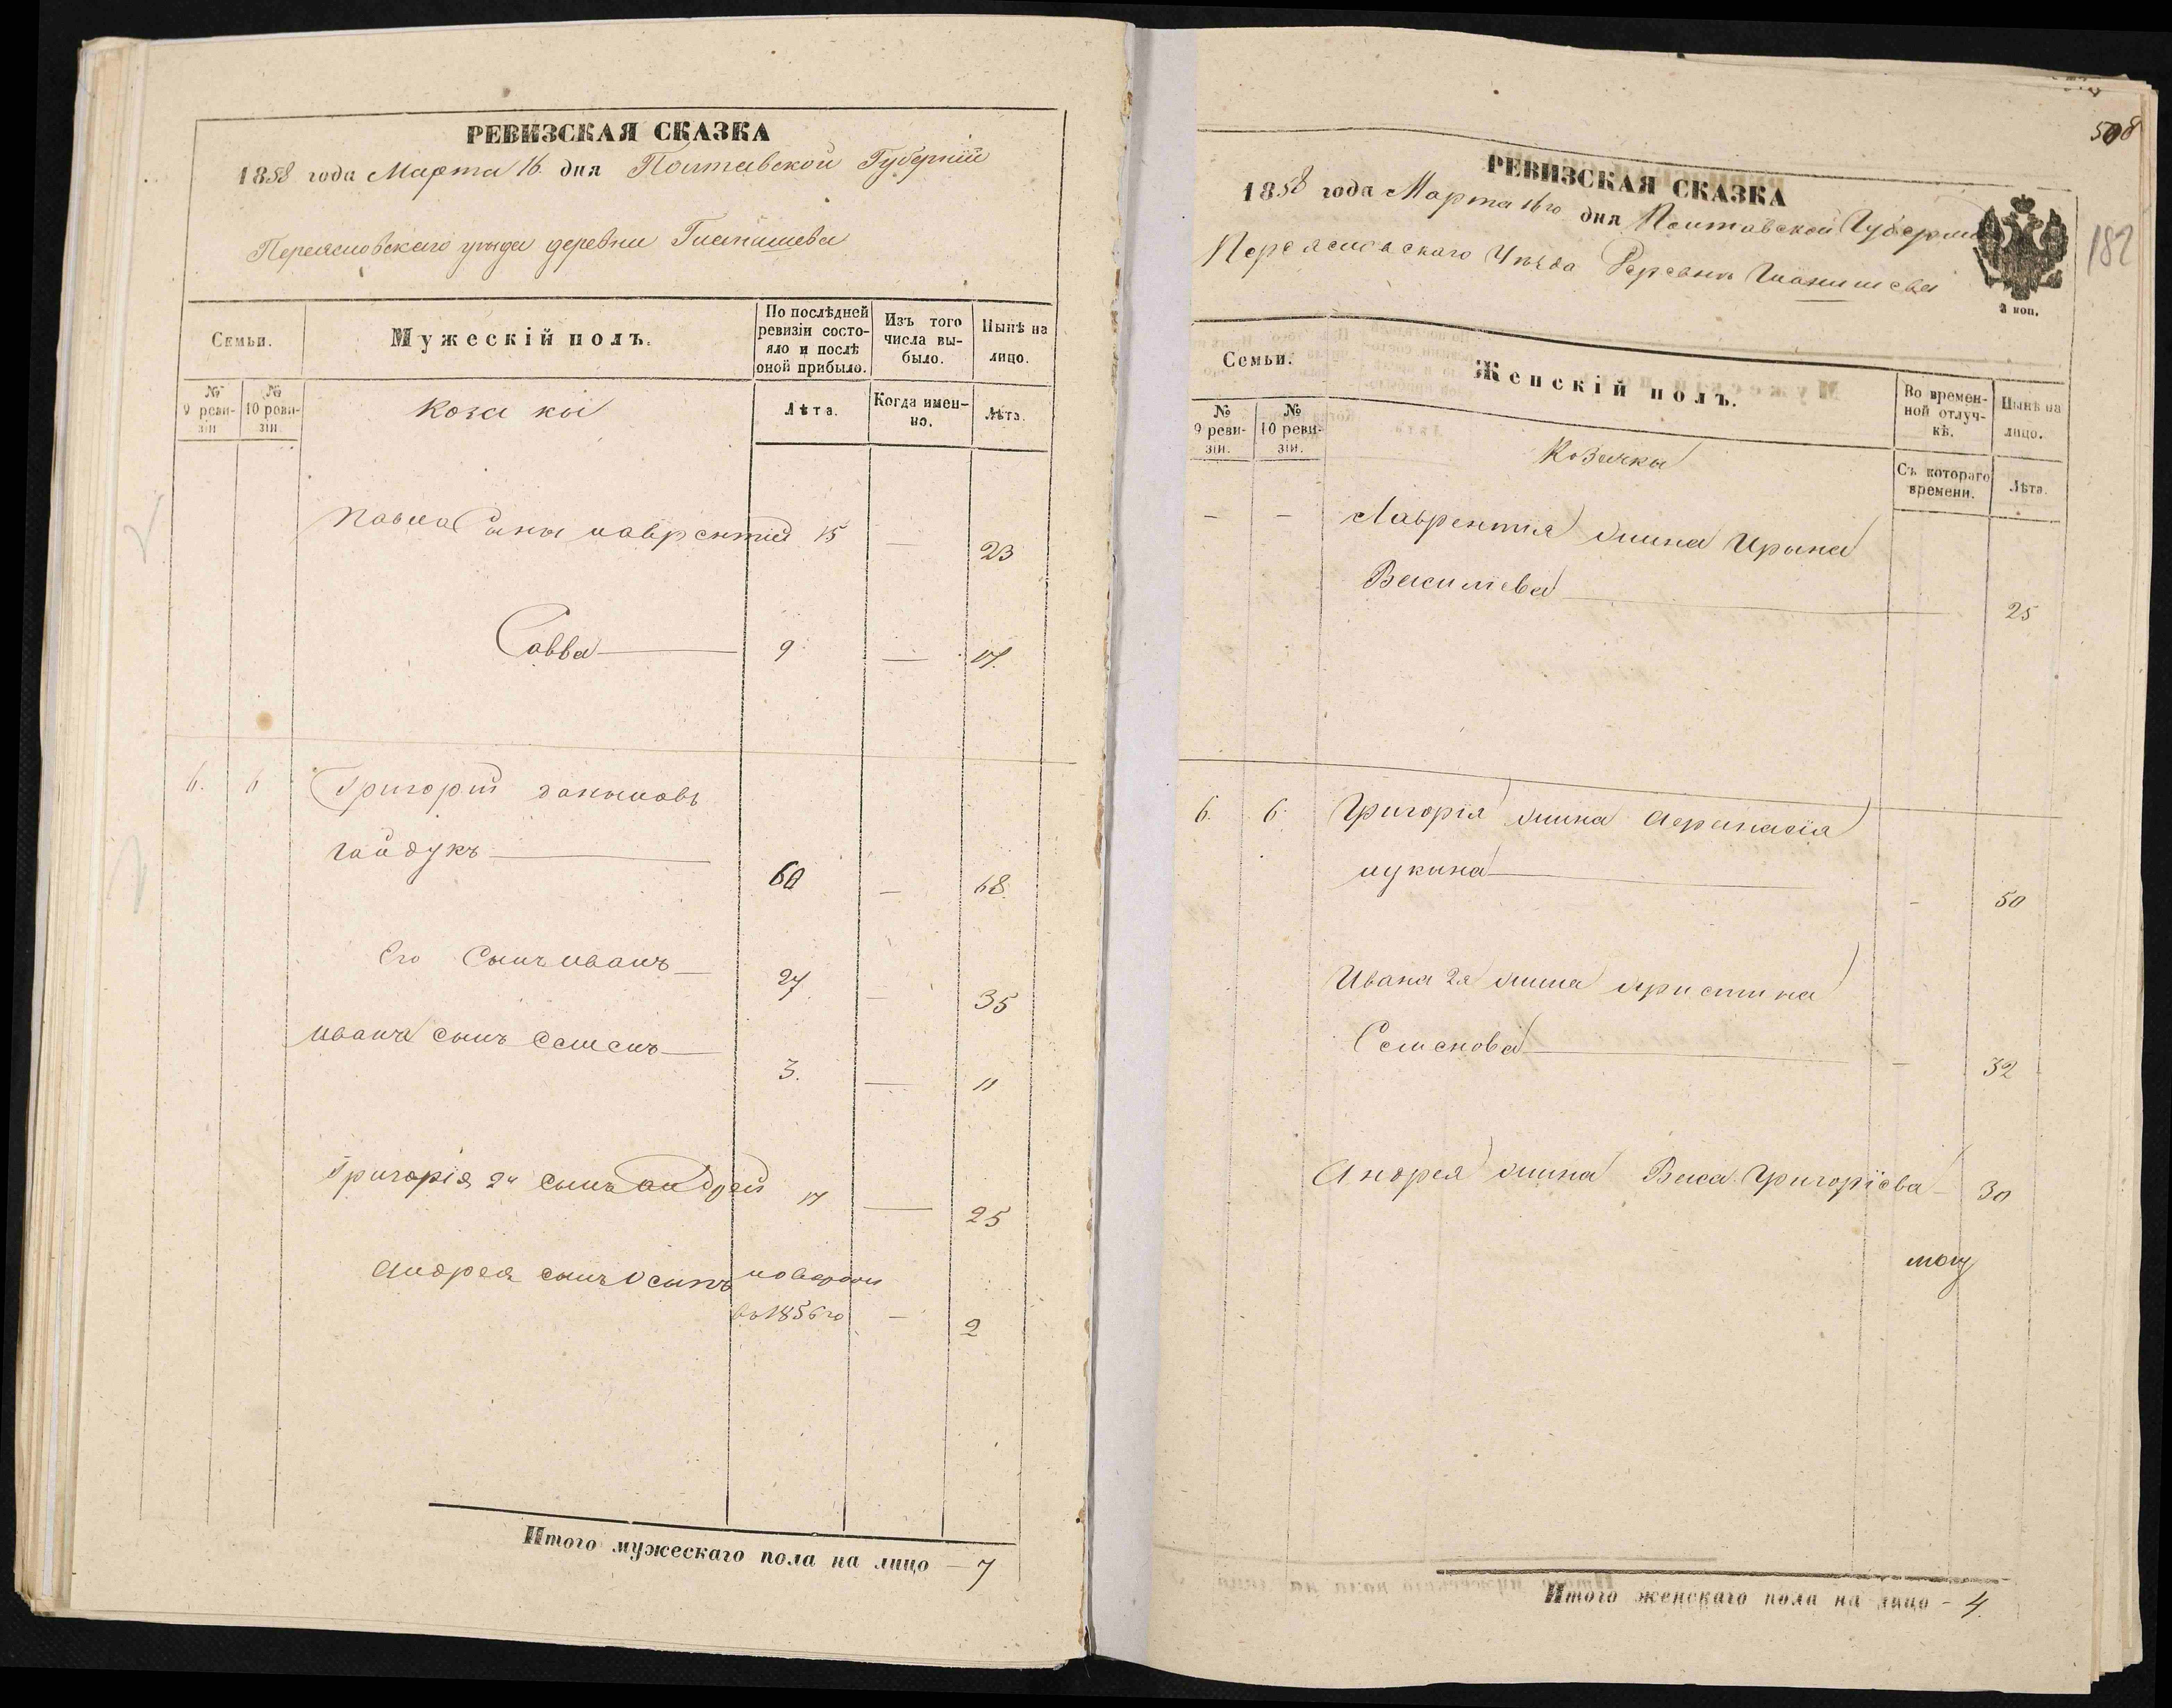 РЕВИЗСКАЯ СКАЗКА
1858 года Марта 16 дня Полтавской Губернии
Переясловского уезда деревни Гланишева
Семьи.
Мужескій полъ.
По послѣдней ревизіи состояло и послѣ оной прибыло.
Изъ того числа выбыло.
Нынѣ на лицо.
№ 9 ревизіи
№ 10 ревизіи.
Козаки
Лѣта.
Когда именно.
Лѣта.
Павла Сыны лаврентий 15 — 23
Савва — 9 — 17.
6. 6 Григорий
гайдукъ — 60 — 68.
Его Сынъ иванъ — 27 — 35
ивана сынъ семенъ — 3. — 11
Григорія 2й сынъ андрей 17 — 25
андрея сынъ Осипъ
въ 1856го — 2
Итого мужескаго пола на лицо — 7
508
182
РЕВИЗСКАЯ СКАЗКА
1858 года Марта 16го дня Полтавской Губернии
Переясловскаго Уѣзда Деревни Гланишева
2 коп.
Семьи.
Женскій полъ.
Во временной отлучкѣ.
Нынѣ на лицо.
№ 9 ревизіи.
№ 10 ревизіи.
Козачки
Съ котораго времени.
Лѣта.
— — Лаврентія жина Ирына
Василіева — 25
6. 6. Григорія жина Афанасія
лукина — - 50
Ивана 2я жина христина
Семенова — — 32
Андрея жина Васа Григоріева — 30
Итого женскаго пола на лицо - 4.